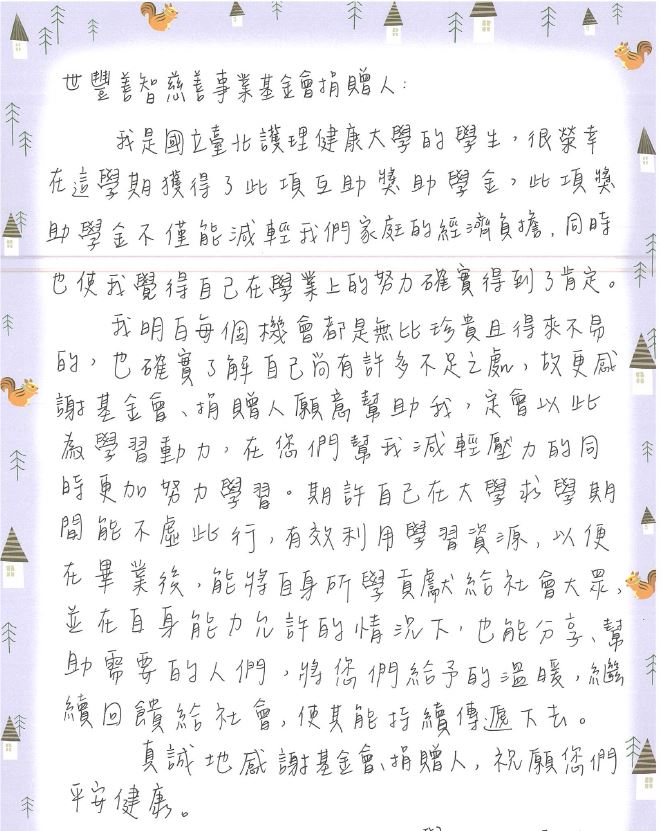 世豐善智慈善事業基金會捐贈人:
我是國立臺北護理健康大學的學生，很榮幸
在這學期獲得了此項互助獎助學金，此項獎
助學金不僅能減輕我們家庭的經濟負擔，同時
也使我覺得自己在學業上的努力確實得到了肯定。
我明白每個機會都是無比珍貴且得來不易
的，也確實了解自己尚有許多不足之處，故更感
謝基金會、捐贈人願意幫助我，定會以此
為學習動力，在您們幫我減輕壓力的同
時更加努力學習。期許自己在大學求學期
間能不虛此行，有效利用學習資源，以便
在畢業後，能將自身所學貢獻給社會大眾，
並在自身能力允許的情況下，也能分享、幫
助需要的人們，將您們給予的溫暖，繼
續回饋給社會，使其能持續傳遞下去。
真誠地感謝基金會、捐贈人，祝願您們
平安健康。